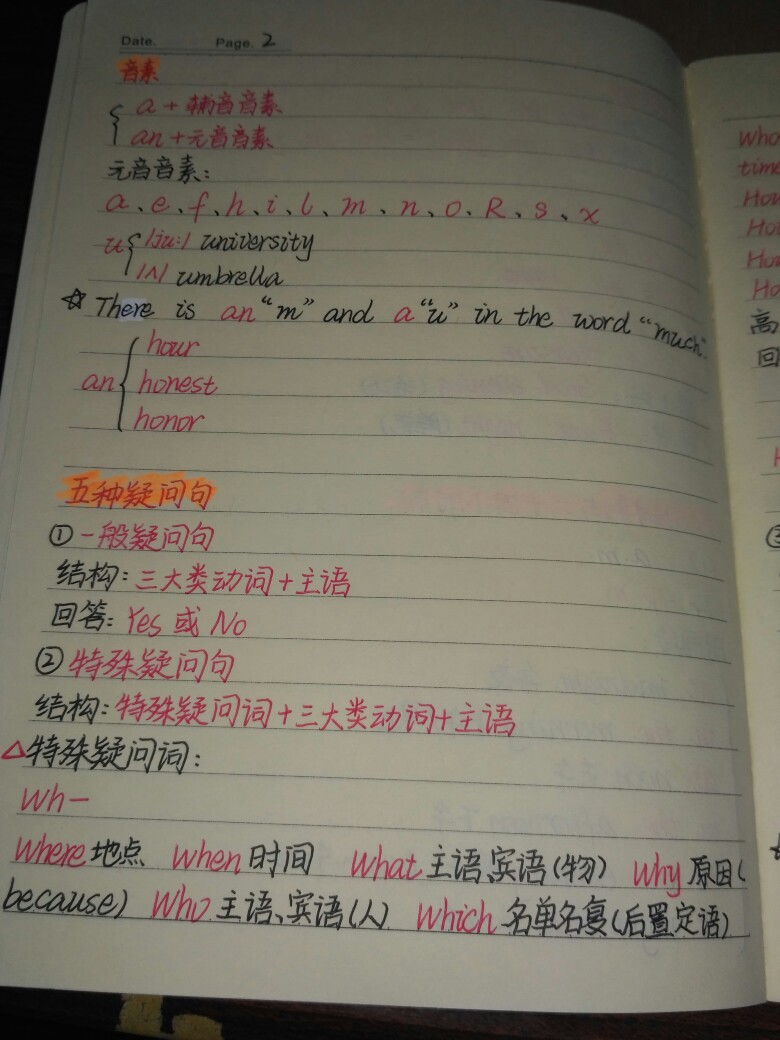 Date. Page. 2
音素
a + 辅音音素
an + 元音音素
元音音素:
a、e、f、h、i、l、m、n、o、R、s、x
u /ju:/ university
/ʌ/ umbrella
☆ There is an "m" and a "u" in the word "much".
hour
an honest
honor
五种疑问句
① 一般疑问句
结构: 三大类动词 + 主语
回答: Yes 或 No
② 特殊疑问句
结构: 特殊疑问词 + 三大类动词 + 主语
△特殊疑问词:
wh—
where 地点 when 时间 what 主语、宾语(物) why 原因(
because) who 主语、宾语(人) which 名单名复(后置定语)
who
time
高
回